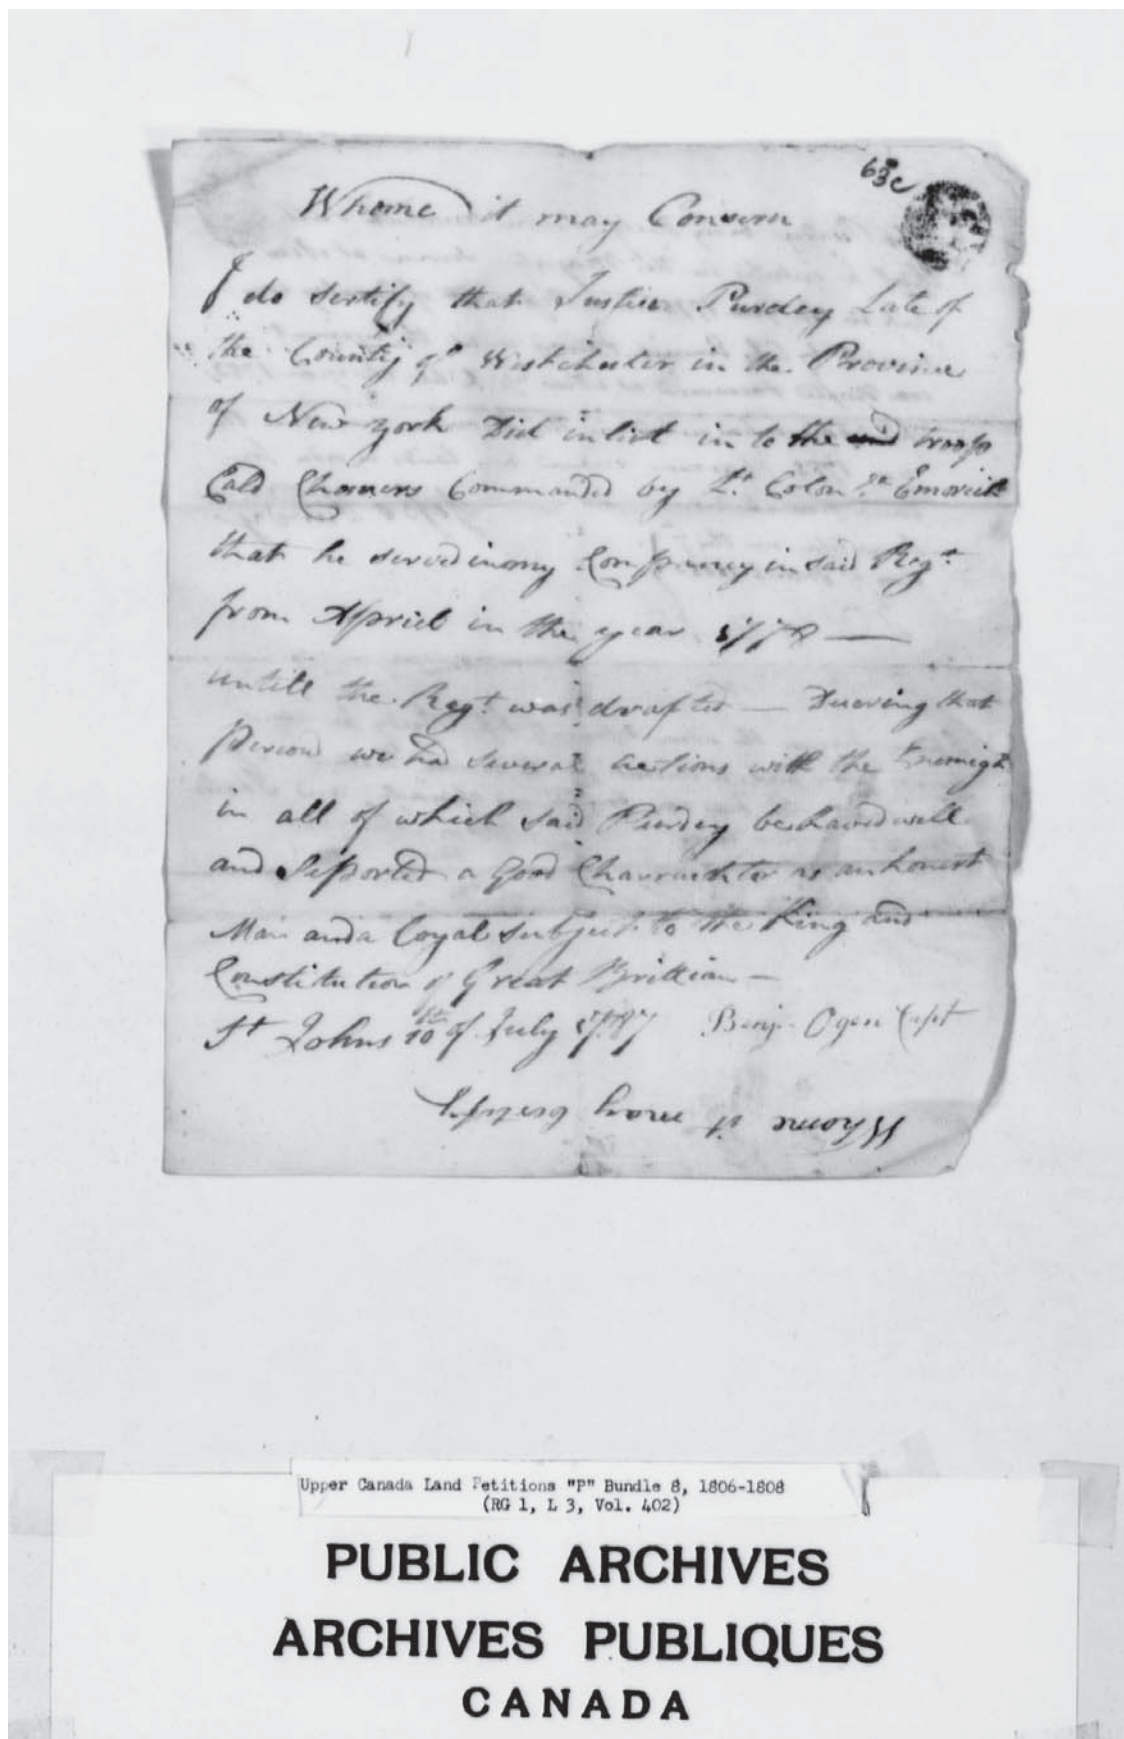 63c
Whome it may Consern
I do sertify that Justice Purdey Late of
the County of Westchester in the Province
of New york Did inlist in to the troop
Cald Chasuers Commanded by Lt Colon Emorick
that he served in my Company in said Regt
from Apriel in the year 1778 —
untill the Regt was drafted — Duering that
Peroud we had several actions with the Enemigh
in all of which said Purdey behaved well
and Seported a Good Charrackter as an honest
Man and a Loyal subject to the King and
Constitution of Great Brittian —
St Johns 10th of July 1787 Benj. Ogen Capt
Whome it may
Upper Canada Land Petitions "P" Bundle 8, 1806-1808
(RG 1, L 3, Vol. 402)
PUBLIC ARCHIVES
ARCHIVES PUBLIQUES
CANADA